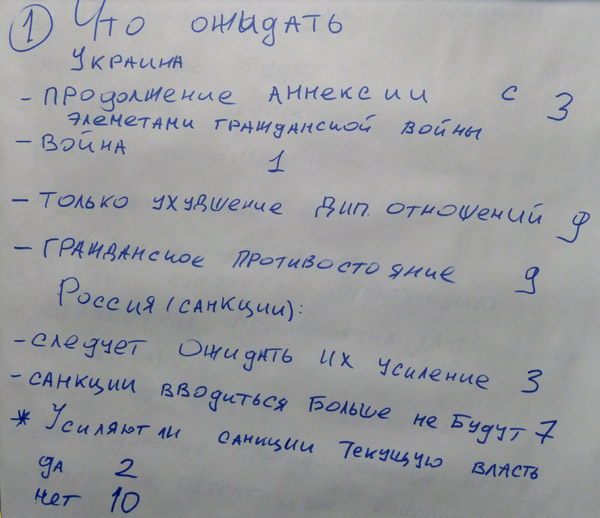 1 Что ожидать
Украина
- Продолжение аннексии с 3
элеметами гражданской войны
- Война 1
- Только ухудшение дип. отношений 9
- Гражданское противостояние 9
Россия (санкции):
- следует ожидать их усиление 3
- санкции вводиться больше не будут 7
* Усиляют ли санкции текущую власть
да 2
нет 10